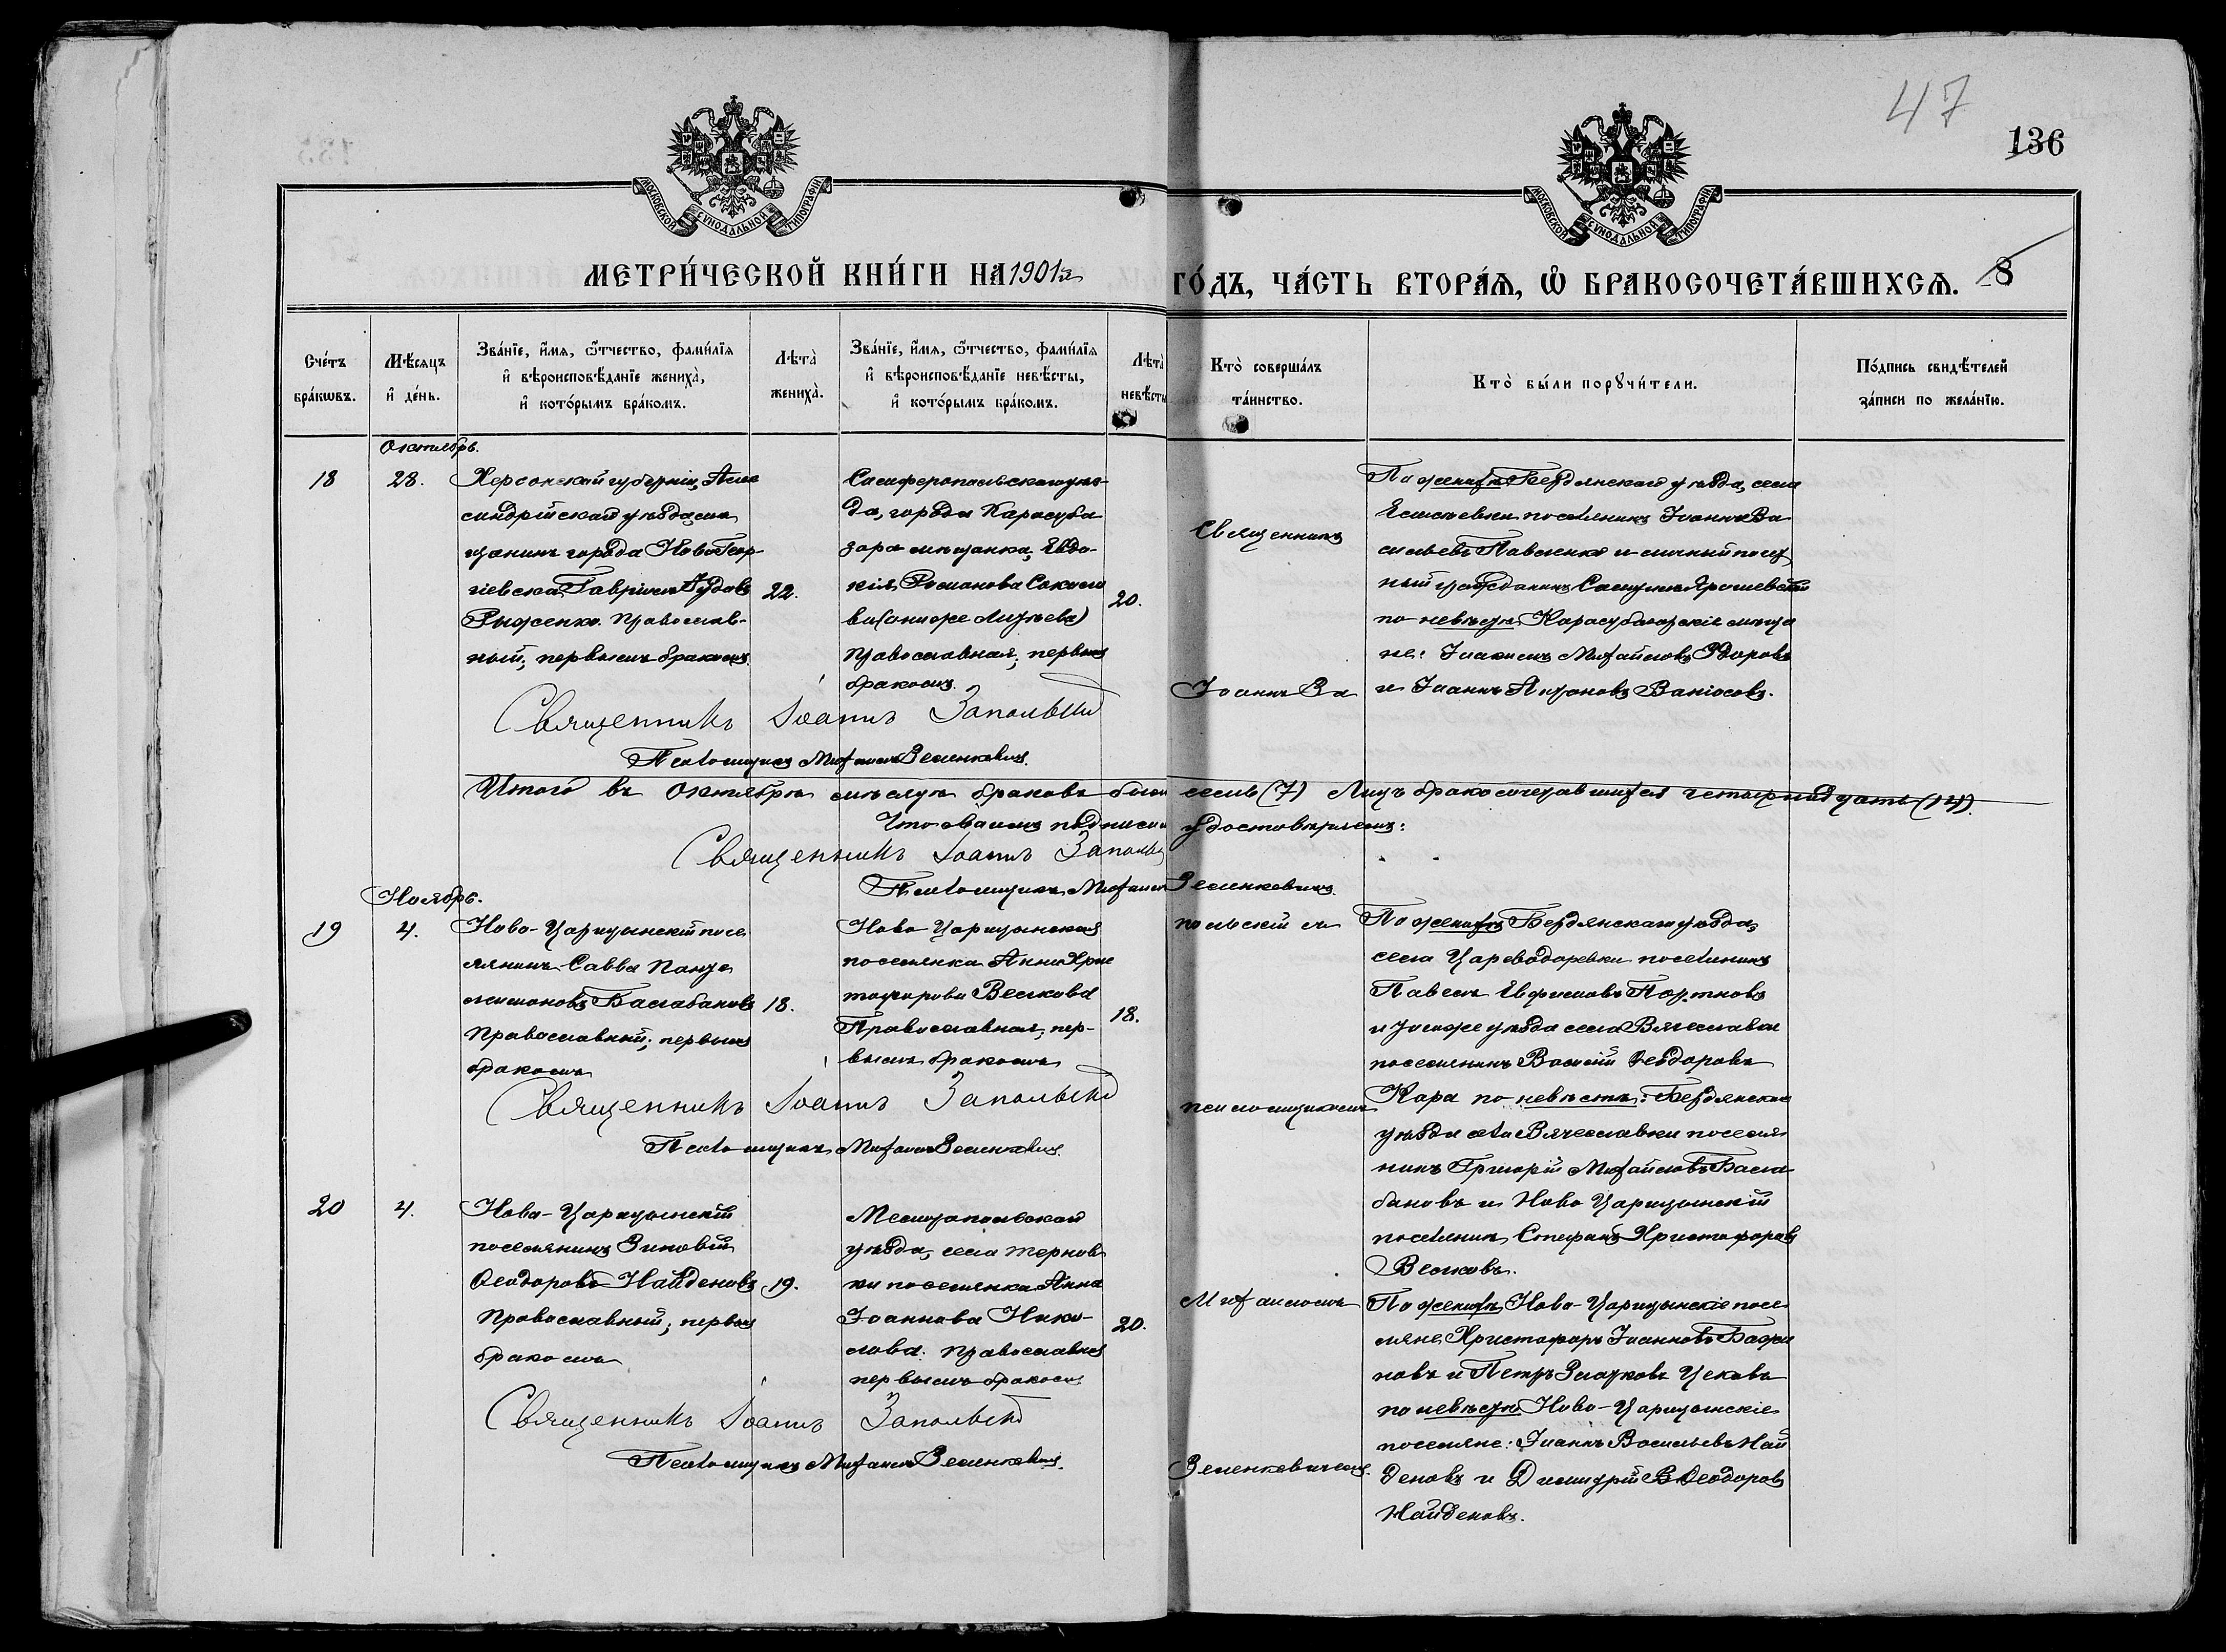 47
136
МОСКОВСКОЙ СУНОДАЛЬНОЙ ТИПОГРАФІИ
МОСКОВСКОЙ СУНОДАЛЬНОЙ ТИПОГРАФІИ
МЕТРИ́ЧЕСКОЙ КНИ́ГИ НА 1901й ГО́ДЪ, ЧА́СТЬ ВТОРА́Ѧ, Ѽ БРАКОСОЧЕТА́ВШИХСѦ. 8
Сче́тъ
бра́кѡвъ.
Мѣ́сѧцъ
и҆ де́нь.
Зва́нїе, и҆́мѧ, ѻ҆́тчество, фами́лїѧ
и҆ вѣроисповѣ́данїе жениха̀,
и҆ кото́рымъ бра́комъ.
Лѣта̀
жениха̀.
Зва́нїе, и҆́мѧ, ѻ҆́тчество, фами́лїѧ
и҆ вѣроисповѣ́данїе невѣ́сты,
и҆ кото́рымъ бра́комъ.
Лѣта̀
невѣ́сты
Кто̀ соверша́лъ
та́инство.
Кто̀ бы́ли порꙋчи́тели.
По́дпись свидѣ́телей
за́писи по жела́нїю.
Октябрь.
18
28.
Херсонской губерніи, Алек
сандрійскаго уѣзда мѣ
щанинъ города НовоГеор-
гіевска Гавріилъ Іудовъ
Рыженко. Православ-
ный; первымъ бракомъ
22.
Симферопольскаго уѣз-
да, города Карасуба
зара мѣщанка, Евдо-
кія Романова Соколо
ва (она же Агуеева)
Православная; первымъ
бракомъ.
20.
Священникъ
Іоаннъ За
По женихѣ Бердянскаго уѣзда, села
поселянинъ Іоаннъ Ва
сильевъ Павленко и личный почет
ный гражданинъ Самуилъ Ярошевскій
по невѣстѣ Карасубазарскіе мѣща
не: Іоакимъ Михайловъ Здоровъ
и Іоаннъ Антоновъ Ваніосовъ.
Священникъ Іоаннъ Запольскій
Псаломщикъ Михаилъ Зеленкевичъ.
Итого въ Октябрѣ мѣсяцѣ браковъ было семь (7) Лицъ бракосочетавшихся четырнадцать (14).
Что своимъ подписомъ удостовѣряемъ:
Священникъ Іоаннъ Запольс
Псаломщикъ Михаилъ Зеленкевичъ.
Ноябрь.
19
4.
Ново-Царицынскій посе
лянинъ Савва Панте
леимоновъ Балабановъ
Православный; первымъ
бракомъ
18.
Ново-Царицынская
поселянка Анна Хрис
тофорова Велкова
Православная, пер-
вымъ бракомъ
18.
польскій съ
псаломщикомъ
По женихѣ Бердянскаго уѣзда,
села Цареводаровки поселянинъ
Павелъ Евфимовъ Портновъ
и того же уѣзда села Вячеславки
поселянинъ Василій Ѳеодоровъ
Кара по невѣстѣ: Бердянскаго
уѣзда села Вячеславки поселя
нинъ Григорій Михайловъ Бала
бановъ и Ново Царицынскій
поселянинъ Стефанъ Христофоровъ
Велковъ.
Священникъ Іоаннъ Запольскій
Псаломщикъ Михаилъ Зеленкевичъ.
20
4.
Ново-Царицынскій
поселянинъ Зиновій
Ѳеодоровъ Найденовъ
Православный; первымъ
бракомъ
19.
Мелитопольскаго
уѣзда, села Терновъ
ки поселянка Анна
Іоаннова Нико-
лова. Православная
первымъ бракомъ
20.
Михаиломъ
Зеленкевичемъ.
По женихѣ Ново-Царицынскіе посе
ляне Христофоръ Іоанновъ Бажа
новъ и Петръ Златковъ Цековъ
по невѣстѣ Ново-Царицынскіе
поселяне: Іоаннъ Васильевъ Най
деновъ и Димитрій Ѳеодоровъ
Найденовъ.
Священникъ Іоаннъ Запольскій
Псаломщикъ Михаилъ Зеленкевичъ.